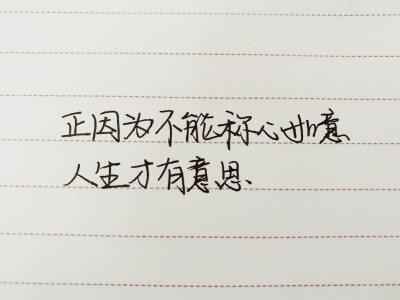 正因为不能称心如意
人生才有意思、